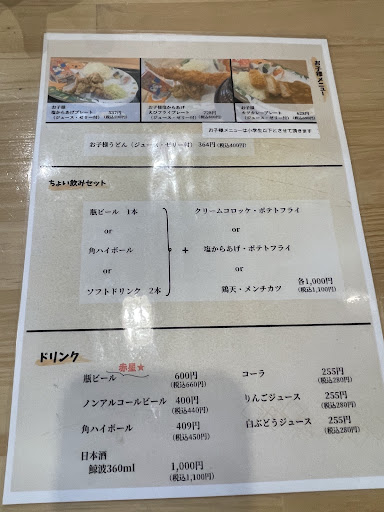 お子様メニュー
お子様
塩からあげプレート
(ジュース・ゼリー付)
お子様塩からあげ
大ひフライプレート
(ジュース・ゼリー付)
お子様
(ジュース・ゼリー付)
お子様メニューは小学生以下とさせて頂きます
お子様うどん(ジュース・ゼリー付) 364円(税込400円)
ちょい飲みセット
瓶ビール 1本
or
角ハイボール
or
ソフトドリンク 2本
+
クリームコロッケ・ポテトフライ
or
塩からあげ・ポテトフライ
or
鶏天・メンチカツ
各1,000円
(税込1,100円)
ドリンク
赤星★
瓶ビール 600円
(税込660円)
ノンアルコールビール 400円
(税込440円)
角ハイボール 409円
(税込450円)
日本酒
鯨波360ml 1,000円
(税込1,100円)
コーラ 255円
(税込280円)
りんごジュース 255円
(税込280円)
白ぶどうジュース 255円
(税込280円)